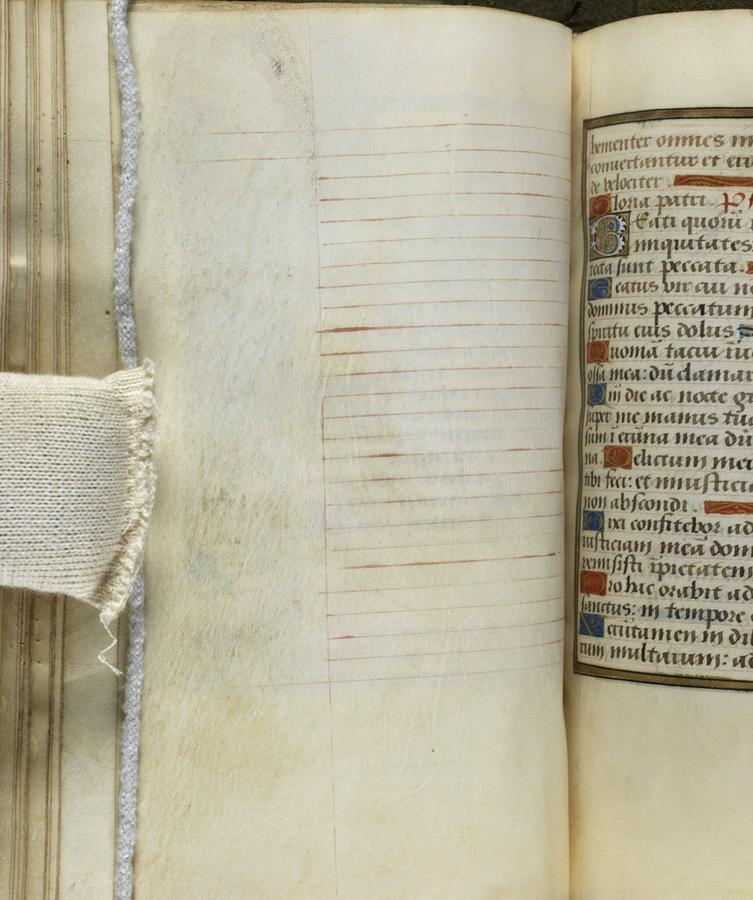 hementer omnes in
convertantur et eru
de velociter.
Gloria patri. Ps
Beati quorū
iniquitates
tecta sunt peccata.
Beatus vir cui no
dominus peccatum
spiritu eius dolus
Quoniā tacui inve
ossa mea: dū clamar
Qm̄ die ac nocte gr
super me manus tua
sum ī erūna mea dū
na. Delictum meū
tibi feci: et iniusticia
non abscondi.
Dixi confitebor ad
iusticiam meā dom
remisisti īpietatem
Pro hac orabit ad
sanctus: in tempore
Verūtamen in dil
rum multarum: ad